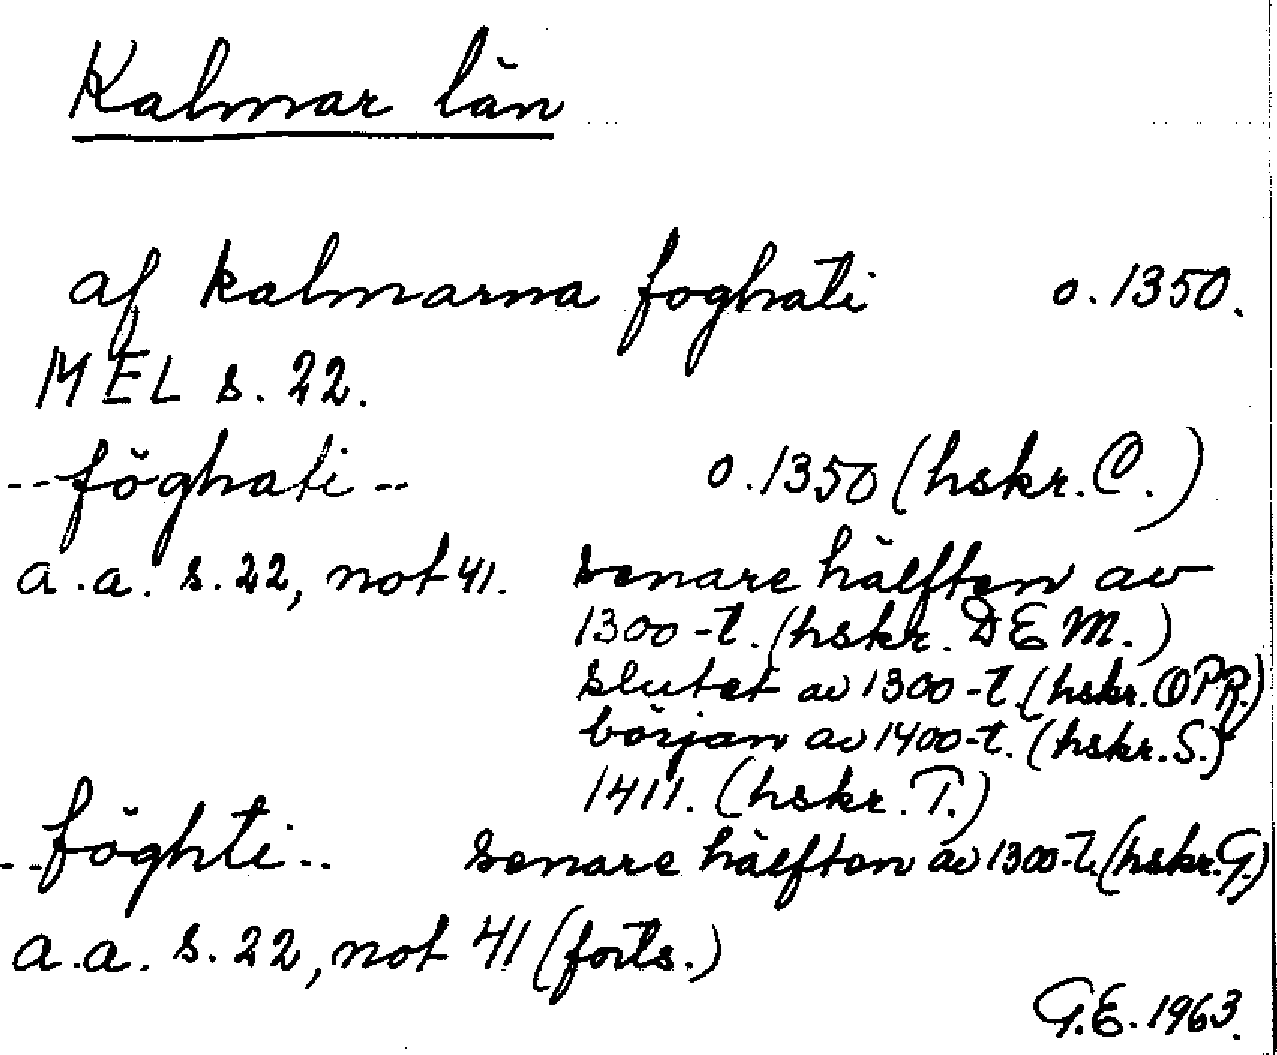 Kalmar län
af kalmarna foghati o. 1350.
MEL s. 22.
-- föghati -- o. 1350 (hskr. C.)
a.a. s. 22, not 41. senare hälften av
1300-t. (hskr. D E M.)
slutet av 1300-t. (hskr. O P R.)
början av 1400-t. (hskr. S.)
1411. (hskr. T.)
-- föghti -- senare hälften av 1300-t. (hskr. G.)
a.a. s. 22, not 41 (forts.)
G.E. 1963.